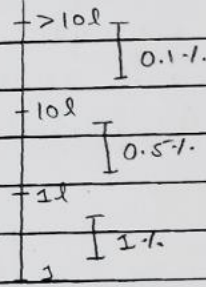 >10l
0.1%.
10l
0.5%.
1l
1%.
1